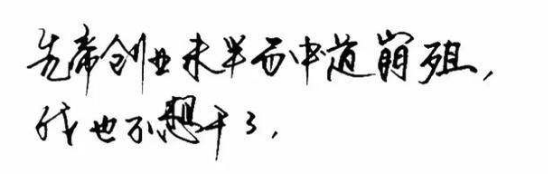 先帝创业未半而中道崩殂,
我也不想干了,